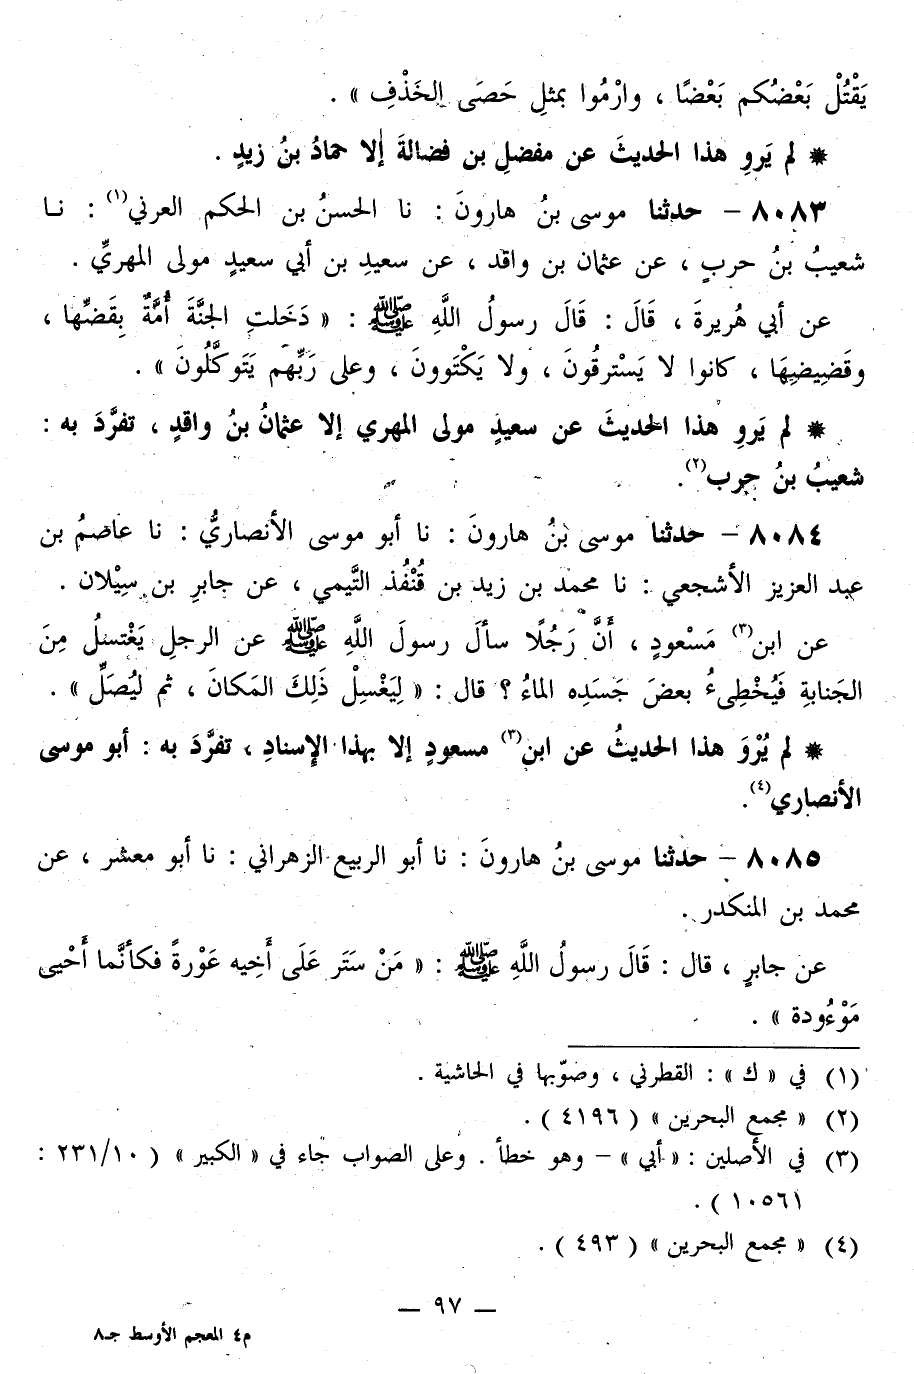 يَقْتُلْ بَعْضُكم بَعْضًا ، وارْمُوا بمثلِ حَصَى الخَذْفِ » .
* لم يَروِ هذا الحديثَ عن مفضلِ بن فضالةَ إلا حمادُ بنُ زيدٍ .
٨٠٨٣ – حدثنا موسى بنُ هارونَ : نا الحسنُ بن الحكم العرني(١) : نـا
شعيبُ بنُ حربٍ ، عن عثمان بن واقد ، عن سعيدِ بن أبي سعيدٍ مولى المهريِّ .
عن أبي هُريرةَ ، قَالَ : قَالَ رسولُ اللَّهِ ﷺ : « دَخَلتِ الجنَّةَ أُمَّةٌ بِقَضِّها ،
وقَضِيضِهَا ، كانوا لا يَسْترقُونَ ، ولا يَكْتَوونَ ، وعلى رَبِّهم يَتَوكَّلُونَ » .
* لم يَروِ هذا الحديثَ عن سعيدٍ مولى المهري إلا عثمانُ بنُ واقدٍ ، تفرَّدَ به :
شعيبُ بنُ حرب(٢).
٨٠٨٤ – حدثنا موسى بْنُ هارونَ : نا أبو موسى الأنصاريُّ : نا عاصمُ بن
عبد العزيز الأشجعي : نا محمد بن زيد بن قُنْفُذ التَّيمي ، عن جابرِ بن سِيْلان .
عن ابن(٣) مَسْعودٍ ، أَنَّ رَجُلًا سألَ رسولَ اللَّهِ ﷺ عن الرجلِ يَغْتسلُ مِنَ
الجَنابةِ فَيُخْطِىءُ بعضَ جَسَدِه الماءُ ؟ قال : « لِيَغْسِلْ ذَلِكَ المَكانَ ، ثم ليُصَلِّ » .
* لم يُرْوَ هذا الحديثُ عن ابن(٣) مسعودٍ إلا بهذا الإِسنادِ ، تفرَّدَ به : أبو موسى
الأنصاري(٤).
٨٠٨٥ – حدثنا موسى بنُ هارونَ : نا أبو الربيع الزهراني : نا أبو معشر ، عن
محمد بن المنكدر .
عن جابرٍ ، قال : قَالَ رسولُ اللَّهِ ﷺ : « مَنْ سَتَر عَلَى أَخِيه عَوْرةً فكأنَّما أَحْيى
مَوْءُودة » .
(١) في « ك » : القطرني ، وصوّبها في الحاشية .
(٢) « مجمع البحرين » ( ٤١٩٦ ) .
(٣) في الأصلين : « أبي » – وهو خطأ . وعلى الصواب جاء في « الكبير » ( ٢٣١/١٠ :
١٠٥٦١ ) .
(٤) « مجمع البحرين » ( ٤٩٣ ) .
— ٩٧ —
م٤ المعجم الأوسط جـ٨